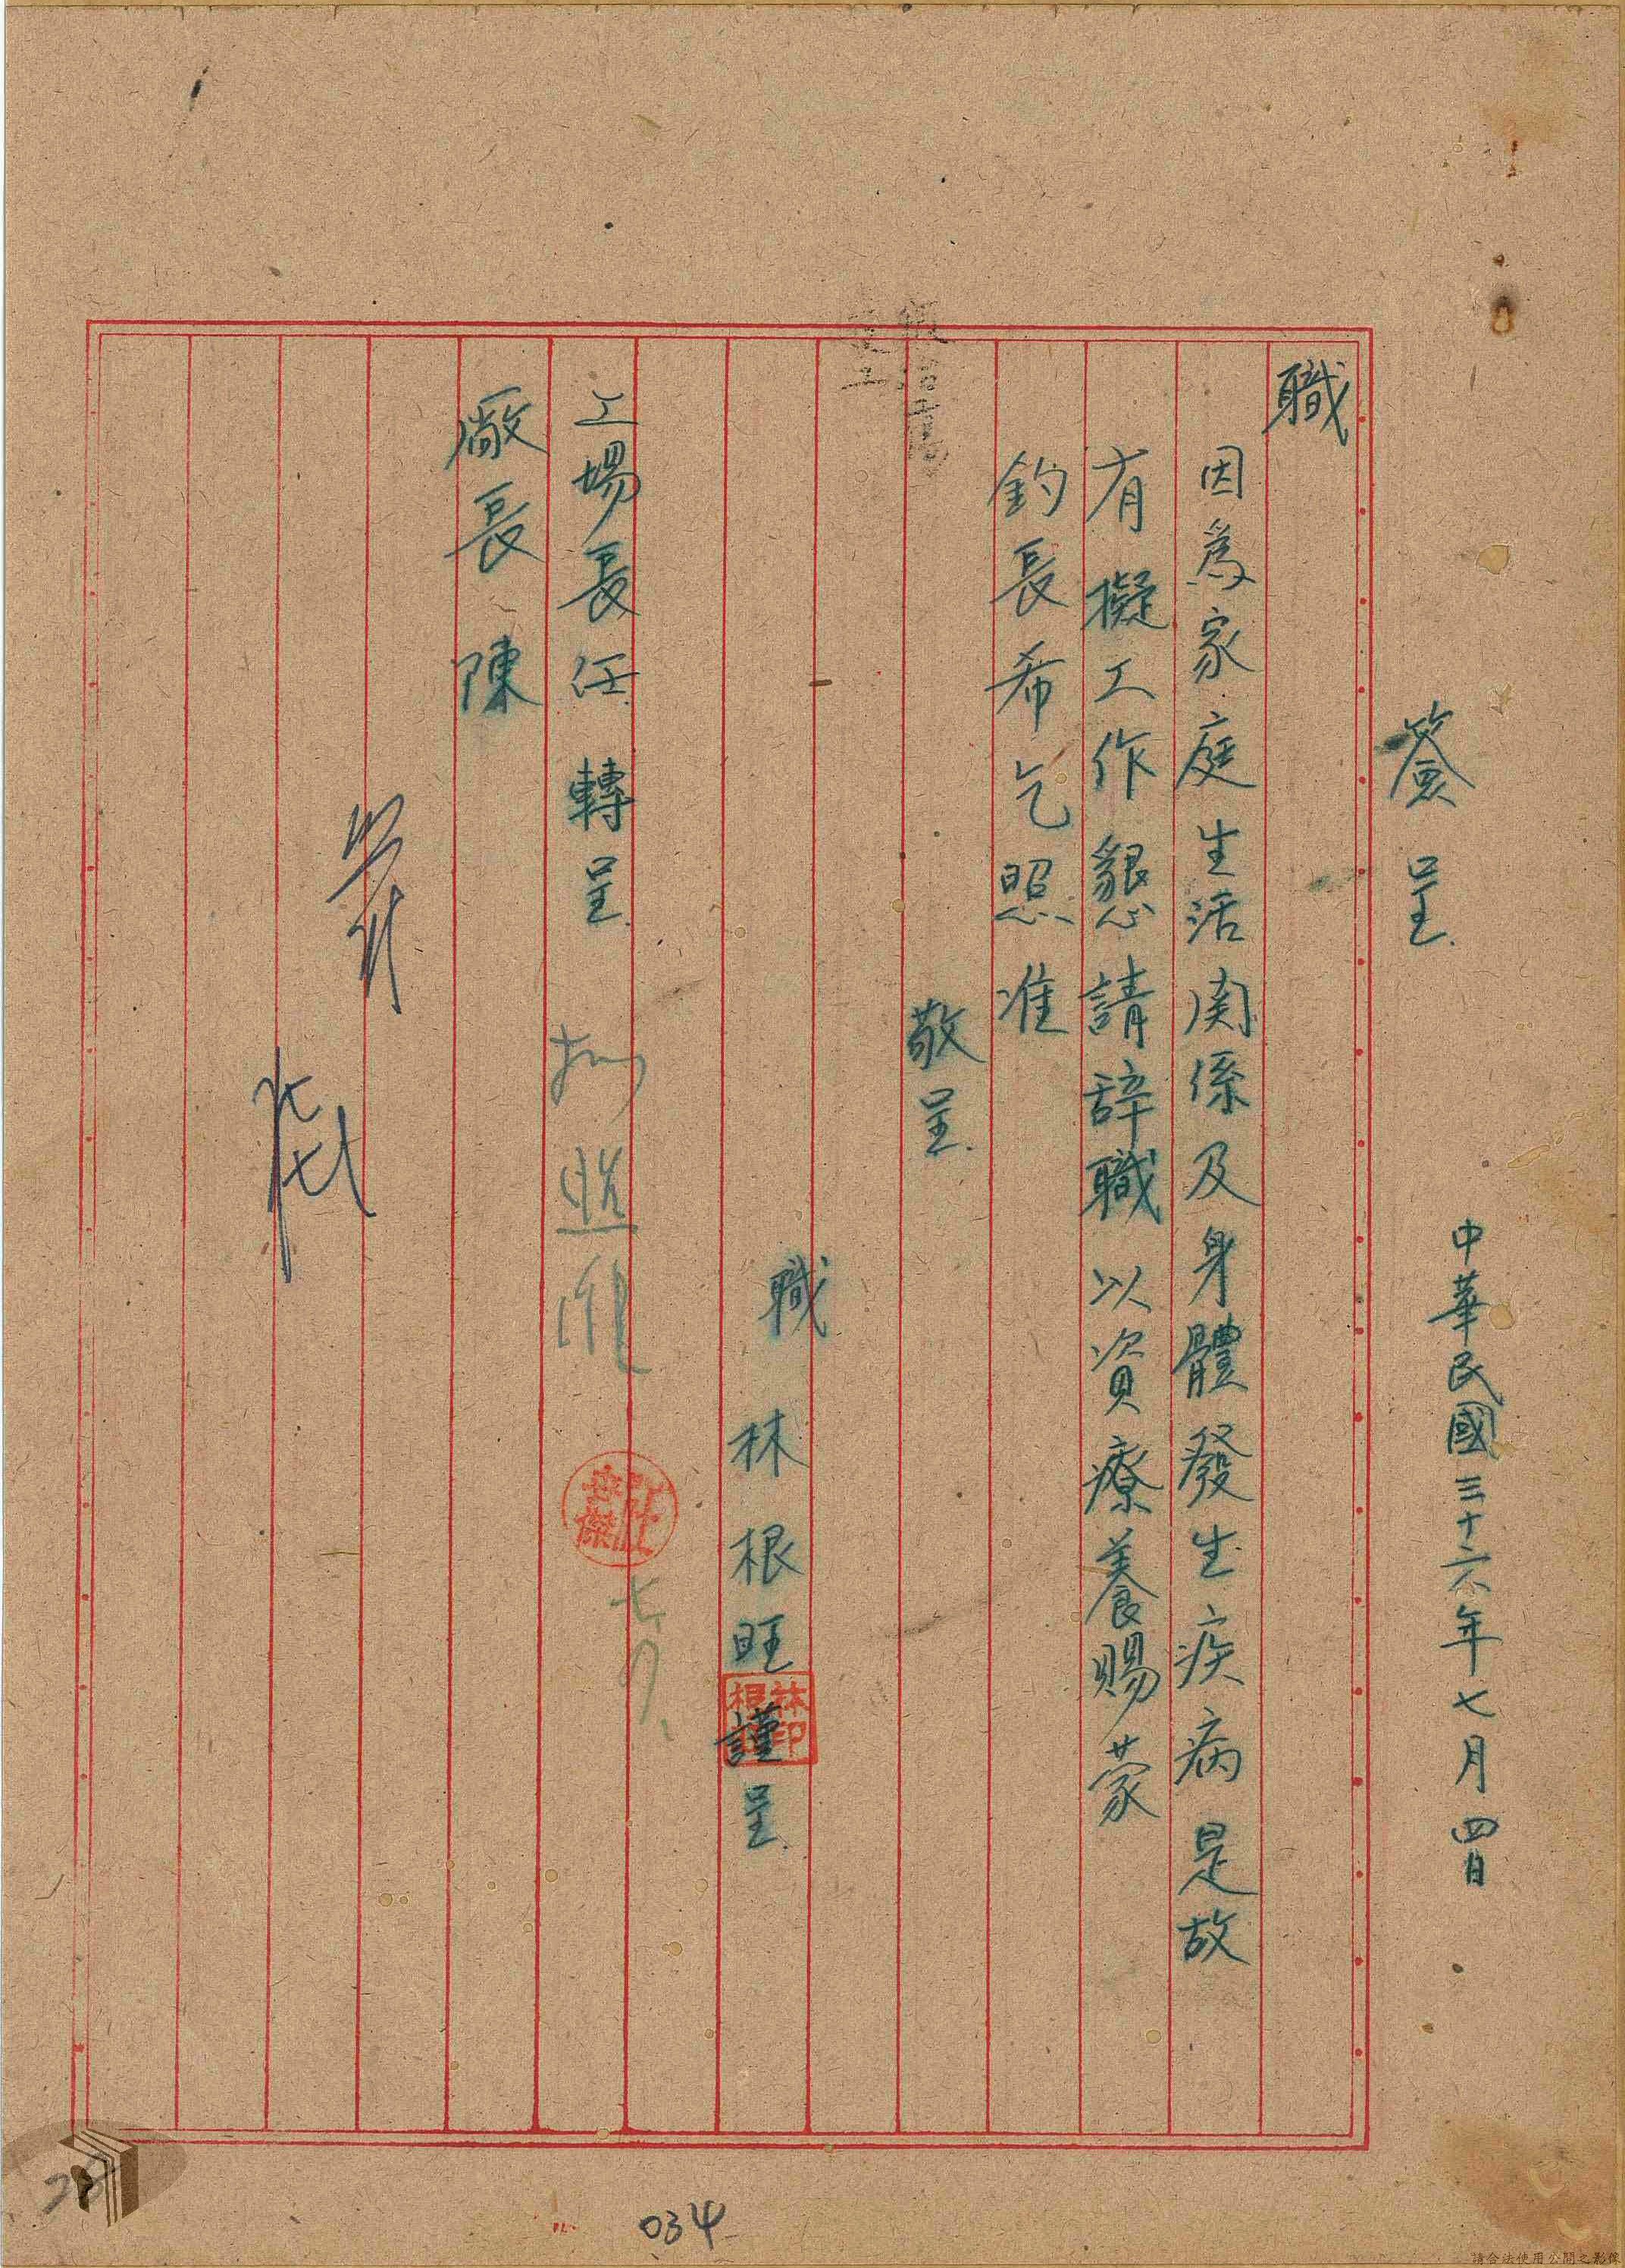 簽呈 中華民國三十六年七月四日
職
因為家庭生活関係及身體發生疾病是故
有擬工作懇請辞職以資療養賜蒙
鈞長希乞照准
敬呈
職 林根旺 謹呈
林印根
工場長任 轉呈
擬照准
廠長陳
034
請合法使用公開之影像